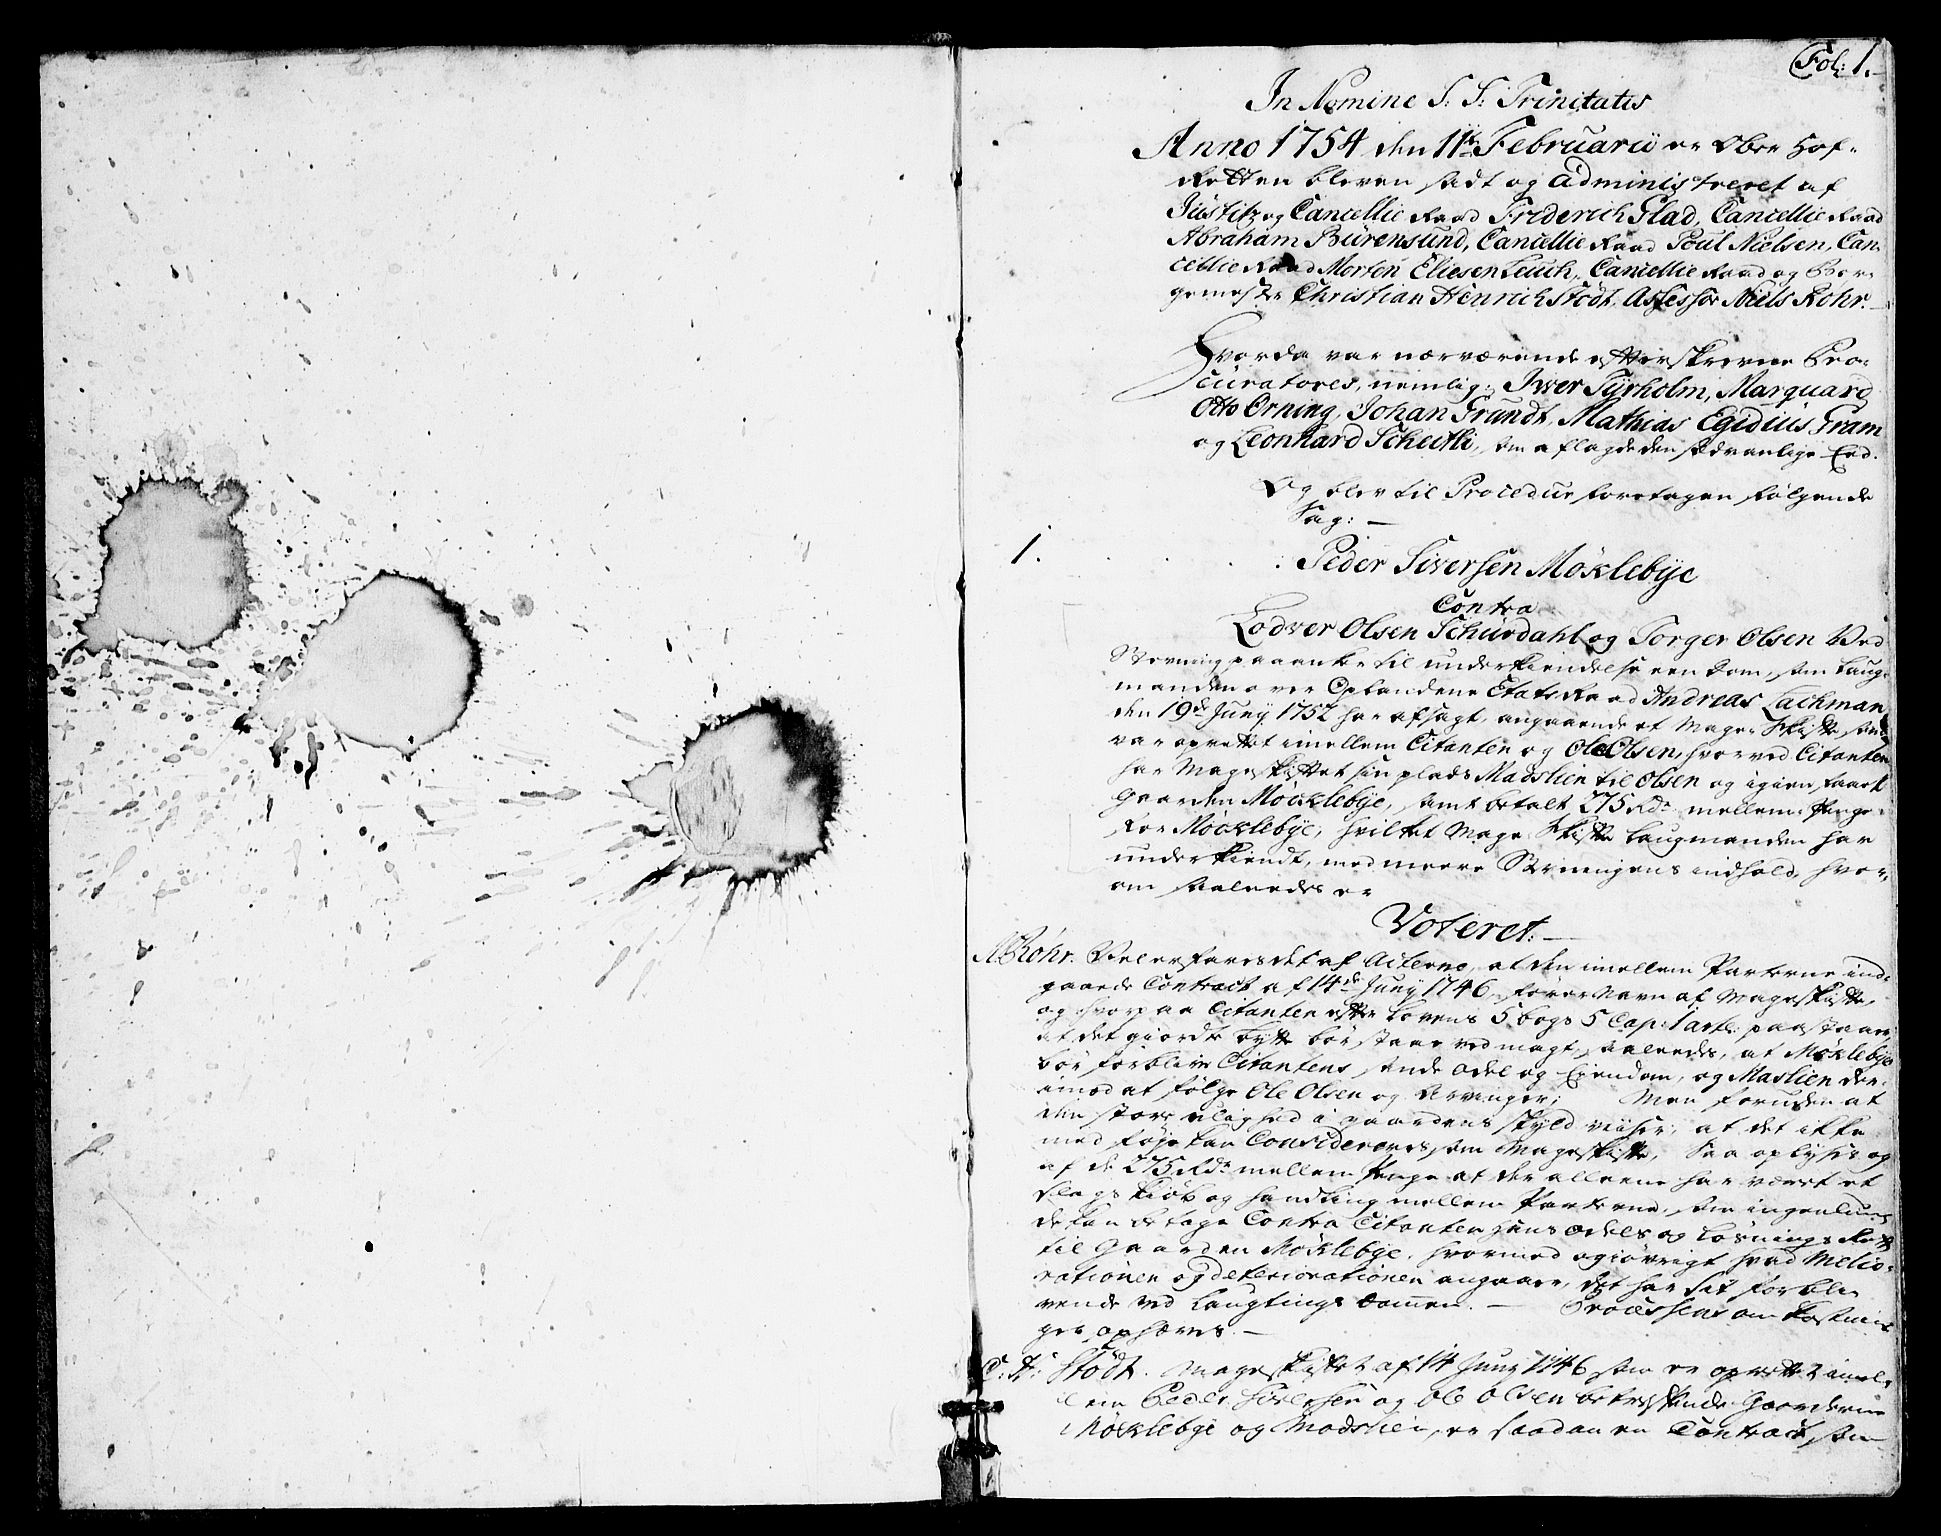 Fol: 1.
In Nomine S: S: Trinitatis
Anno 1754 den 11te Februarii er Ober Hof-
Retten bleven sadt og administreret af
Justitz og Cancellie Raad Friderich Glad, Cancellie Raad
Abraham Bürensund, Cancellie Raad Poul Nielsen, Can-
cellie Raad Morten Eliesen Leuch, Cancellie Raad og Bor-
gemester Christian Henrich Stodt, Assessor Niels Rohr.
Hvorda var nærværende efterskrevne Pro-
curatores, nemlig: Iver Tyrholm, Marquard
Otto Orning, Johan Grundt, Mathias Egidius Gram
og Leonhard Scheitli, som aflagde den sædvanlige Eed.
Og blev til Procedur foretagen følgende
Sag: —
1. Peder Siversen Møklebye
Contra
Lodver Olsen Schurdahl og Torger Olsen Ved
Stevning paaanke til underkiendelse een Dom, som Laug-
manden over Oplandene Etats Raad Andreas Lachman
den 19de Junÿ 1752 har afsagt, angaaende et Mage Skifte som
var oprettet imellem Citanten og Ole Olsen, hvorved Citanten
har Mageskiftet sin plads Madslien til Olsen og igien faaet
Gaarden Möcklebye, samt betalt 275 Rdr mellem Penge
for Möcklebye, hvilket Mage Skifte Laugmanden har
underkiendt, med meere Stevningens indhold, hvor-
om saaledes er
Voteret. —
N: Rohr. Vel erfares det af Acterne, at den imellem Parterne ind-
gaaede Contract af 14de Junÿ 1746, fører Navn af Mageskifte,
og hvorpaa Citanten efter Lovens 5 bogs 5 Cap: 1 artl: paastaaer
at det giorde bytte bør staae ved magt, saaledes, at Møklebye
bør forblive Citantens Odel og Eiendom, og Maslien der-
imod at følge Ole Olsen og Arvinger; Men foruden at
den store ulighed i gaardens skyld viiser, at det ikke
med føje kan Considereres som Mageskifte, Saa oplyses og
af de 275 Rdr mellem Penge at der alleene har været et
slags kiøb og handling mellem Parterne, som ingenlunde
kan betage Contra Citanten hans Odels og Løsnings Rett
til Gaarden Møklebye, hvormed og iøvrigt hvad Melio-
rationen og deteriorationen angaaer, det har sit forbli-
vende ved Laugtings Dommen. — Processens omkostnin-
ger ophæves. —
C: H: Stodt. Mageskiftet af 14 Junÿ 1746 som er oprettet imel-
lem Peder Siversen og Ole Olsen betreffende Gaarderne
Møcklebye og Madslien, er saadan en Contract, som